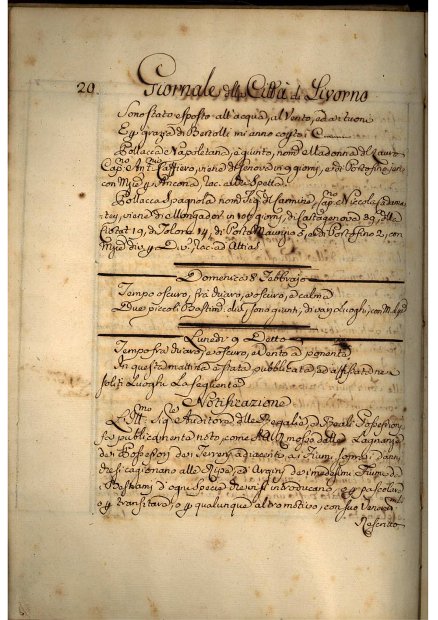 20. Giornale della Città di Livorno
Sono stato esposto all'acqua, al Vento, ed a' tuoni
E p grazia di Bertolli mi anno
Pollacca Napoletana, è quinto, nom.ª Madonna di Lauro
Cap.no Ant. Caffiero, viene di Genova in 9 giorni, e di Portofino ieri,
con Mrd p Ancona, rac. alla Spella.
Pollacca Spagnola nom. Carmine, Cap. Niccola
viene di in 106 giorni, di Cartagenova 89, della
19, di Tolone 14, di Porto Maurizio 5, e di Portofino 2, con
Mrd div. p D.vi, rac. ad
Domenica 8 Febbrajo
Tempo oscuro, frà chiaro, e oscuro, e calma
Due piccoli Bastim. sono giunti, di varj Luoghi, con
Lunedì 9 Detto
Tempo fra chiaro, e oscuro, e Vento a ponente
In questa mattina è stata pubblicata, ed affissa ne
soliti Luoghi La seguente
Notificazione
L'Ill.mo Sig.re Auditore delle Regalie, e Reali Possessioni,
fà pubblicamente noto, come mosso dalle Lagnanze
de Possessori dei Terreni adiacenti, ai Fiumi sopra i danni
che si cagionano alle Ripe, ed Argini dei medesimi Fiumi da
i Bestiami d'ogni Specie che vi si introducano, o p pascolare
o p transitare, o p qualunque altro motivo, con suo Venerato
Rescritto